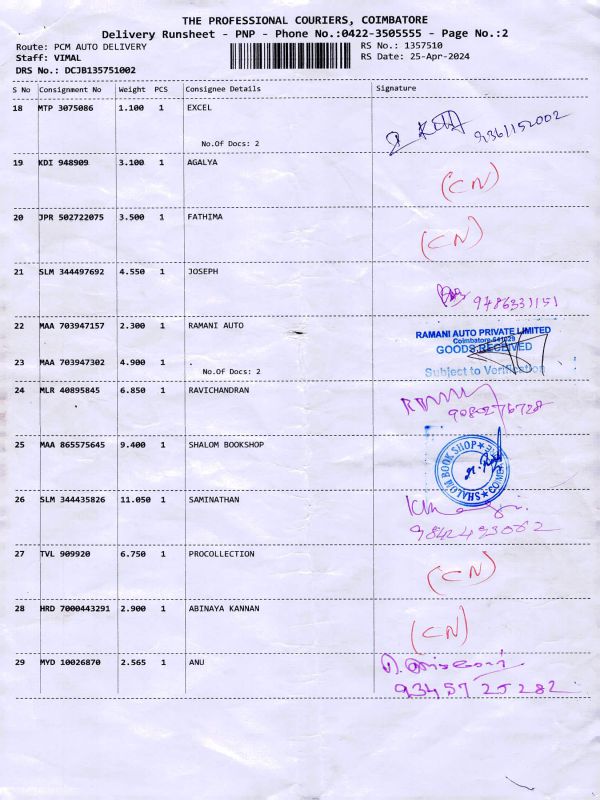 THE PROFESSIONAL COURIERS, COIMBATORE
Delivery Runsheet - PNP - Phone No.:0422-3505555 - Page No.:2
Route: PCM AUTO DELIVERY
RS No.: 1357510
Staff: VIMAL
RS Date: 25-Apr-2024
DRS No.: DCJB135751002
S No Consignment No Weight PCS Consignee Details Signature
18 MTP 3075086 1.100 1 EXCEL
9361152002
No.Of Docs: 2
19 KDI 948909 3.100 1 AGALYA
(CN)
20 JPR 502722075 3.500 1 FATHIMA
(CN)
21 SLM 344497692 4.550 1 JOSEPH
9486331151
22 MAA 703947157 2.300 1 RAMANI AUTO
RAMANI AUTO PRIVATE LIMITED
Coimbatore-641029
GOODS RECEIVED
23 MAA 703947302 4.900 1
No.Of Docs: 2
Subject to Verification
24 MLR 40895845 6.850 1 RAVICHANDRAN
9080276728
25 MAA 865575645 9.400 1 SHALOM BOOKSHOP
SHALOM BOOK SHOP
26 SLM 344435826 11.050 1 SAMINATHAN
9842493062
27 TVL 909920 6.750 1 PROCOLLECTION
(CN)
28 HRD 7000443291 2.900 1 ABINAYA KANNAN
(CN)
29 MYD 10026870 2.565 1 ANU
93457 25282